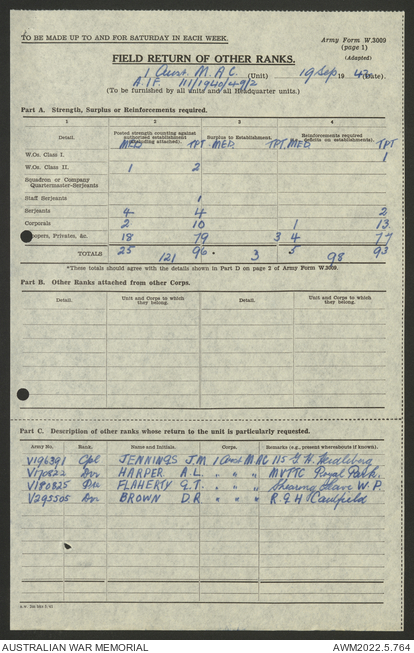 TO BE MADE UP TO AND FOR SATURDAY IN EACH WEEK.
Army Form W.3009
(page 1)
(Adapted)
FIELD RETURN OF OTHER RANKS.
1 Aust. M.A.C. (Unit) 19 Sep 1942 (Date).
A.I.F. 111/1940/49/2
(To be furnished by all units and all Headquarter units.)
Part A. Strength, Surplus or Reinforcements required.
1 2 3 4
Detail. Posted strength counting against authorised establishment (excluding attached). Surplus to Establishment. Reinforcements required (deficits on establishments).
MED TPT MED. TPT. MED TPT
W.Os. Class I. 1
W.Os. Class II. 1 2
Squadron or Company Quartermaster-Serjeants
Staff Serjeants 1
Serjeants 4 4 2
Corporals 2 10 1 13
Troopers, Privates, &c. 18 79 3 4 77
TOTALS 25 121 96 3 5 98 93
*These totals should agree with the details shown in Part D on page 2 of Army Form W.3009.
Part B. Other Ranks attached from other Corps.
Detail. Unit and Corps to which they belong. Detail. Unit and Corps to which they belong.
Part C. Description of other ranks whose return to the unit is particularly requested.
Army No. Rank. Name and Initials. Corps. Remarks (e.g., present whereabouts if known).
V196391 Cpl JENNINGS J.M. 1 Aust M AC 115 G.H. Heidelberg
V170822 Dvr HARPER A.L. " " " MVTTC Royal Park.
V180825 Dvr FLAHERTY G.T. " " " W.P.
V295505 Dvr BROWN D.R. " " " R.G.H Caulfield
AUSTRALIAN WAR MEMORIAL
AWM2022.5.764